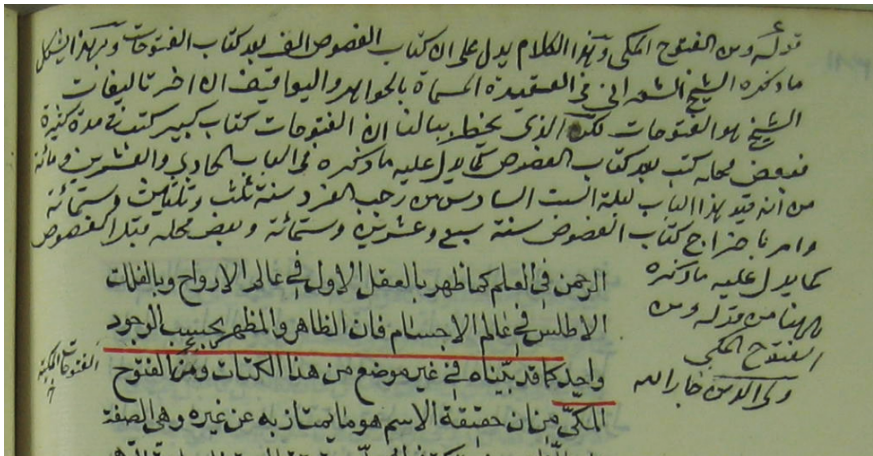 قوله ومن الفتوح المكي وهذا الكلام يدل على ان كتاب الفصوص الف بعد كتاب الفتوحات وبهذا يشكل
ما ذكره الشيخ الشعراني في العقيدة المسماة بالجواهر واليواقيت ان اخر تاليفات
الشيخ هو الفتوحات لكن الذي يخطر ببالنا ان الفتوحات كتاب كبير كتب في مدة كثيرة
فبعض محله كتب بعد كتاب الفصوص كما يدل عليه ما ذكره في الباب الحادي والعشرين ومائة
من انه قيد هذا الباب ليلة السبت السادس من رجب الفرد سنة ثلث وثلثين وستمائة
وامر باخراج كتاب الفصوص سنة سبع وعشرين وستمائة وبعض محله قبل الفصوص
كما يدل عليه ما ذكره
ههنا من قوله ومن
الفتوح المكي
ولى الدين جار الله
الرحمن في العلم كما ظهر بالعقل الاول في عالم الارواح وبالفلك
الاطلس في عالم الاجسام فان الظاهر والمظهر بحسب الوجود
واحد كما قد بيّناه في غير موضع من هذا الكتاب ومن الفتوح
المكيّ من ان حقيقة الاسم هو ما يمتاز به عن غيره وهي الصفة
الفتوحات المكية